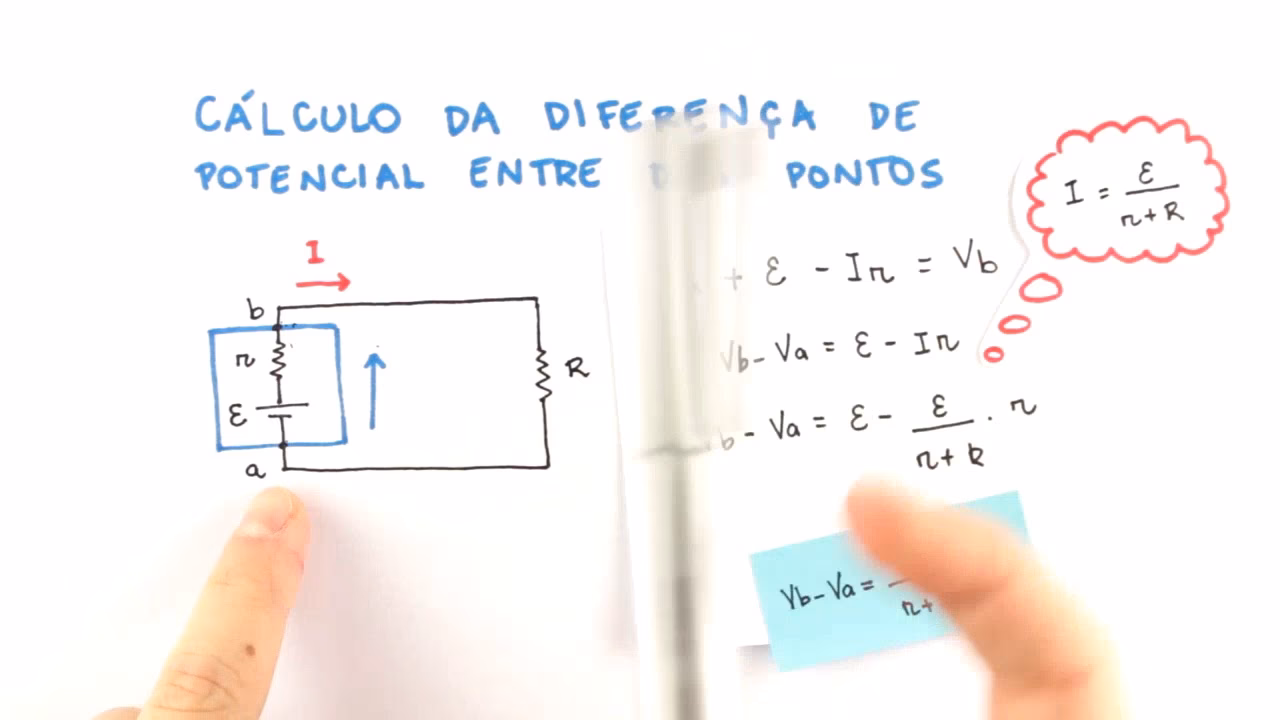 CÁLCULO DA DIFERENÇA DE
POTENCIAL ENTRE PONTOS
I = ε / r + R
I
+ ε - Ir = Vb
b
Vb - Va = ε - Ir
r
R
ε
b - Va = ε - ε / r + R . r
a
Vb - Va =
r+